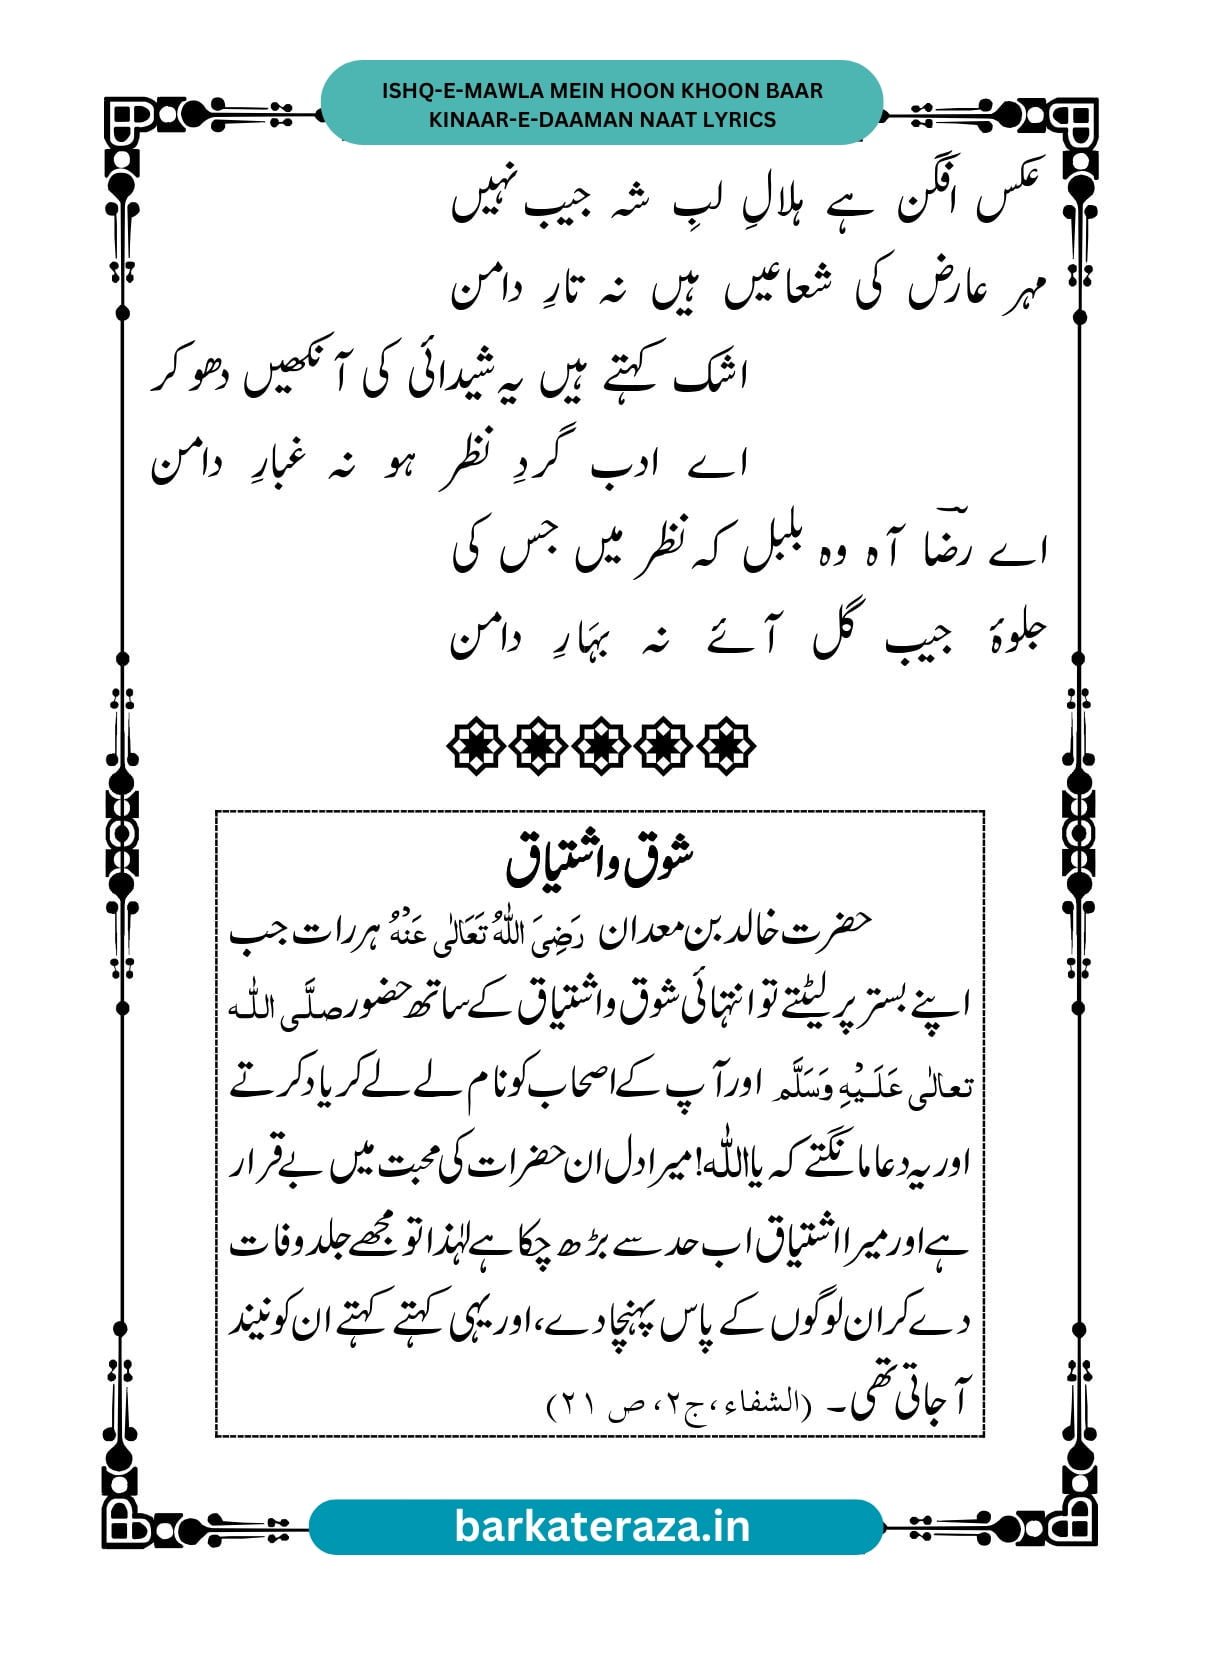 ISHQ-E-MAWLA MEIN HOON KHOON BAAR
KINAAR-E-DAAMAN NAAT LYRICS
عکس افگن ہے ہلالِ لبِ شہ جیب نہیں
مہر عارض کی شعاعیں ہیں نہ تارِ دامن
اشک کہتے ہیں یہ شیدائی کی آنکھیں دھو کر
اے ادب گردِ نظر ہو نہ غبارِ دامن
اے رضاؔ آہ وہ بلبل کہ نظر میں جس کی
جلوۂ جیب گل آئے نہ بہَارِ دامن
شوق و اشتیاق
حضرت خالد بن معدان رَضِیَ اللّٰہُ تَعَالٰی عَنْہُ ہر رات جب
اپنے بستر پر لیٹتے تو انتہائی شوق و اشتیاق کے ساتھ حضور صلَّی اللّٰہ
تعالٰی عَلَیْہِ وَسَلَّم اور آپ کے اصحاب کو نام لے لے کر یاد کرتے
اور یہ دعا مانگتے کہ یا اللّٰہ! میرا دل ان حضرات کی محبت میں بے قرار
ہے اور میرا اشتیاق اب حد سے بڑھ چکا ہے لہٰذا تو مجھے جلد وفات
دے کر ان لوگوں کے پاس پہنچا دے، اور یہی کہتے کہتے ان کو نیند
آ جاتی تھی۔ (الشفاء، ج۲، ص ۲۱)
barkateraza.in